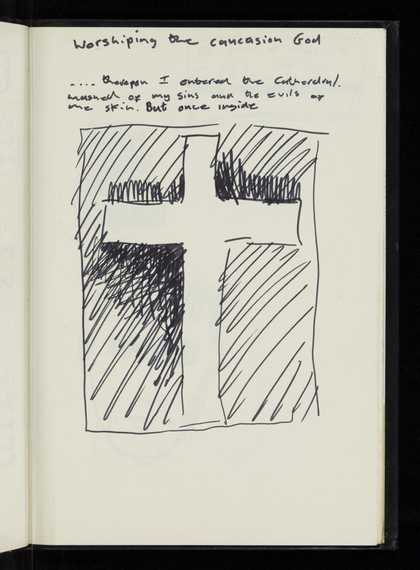 Worshiping the caucasion God
.... thereupon I entered the Cathedral.
washed of my sins and the evils of
the skin. But once inside